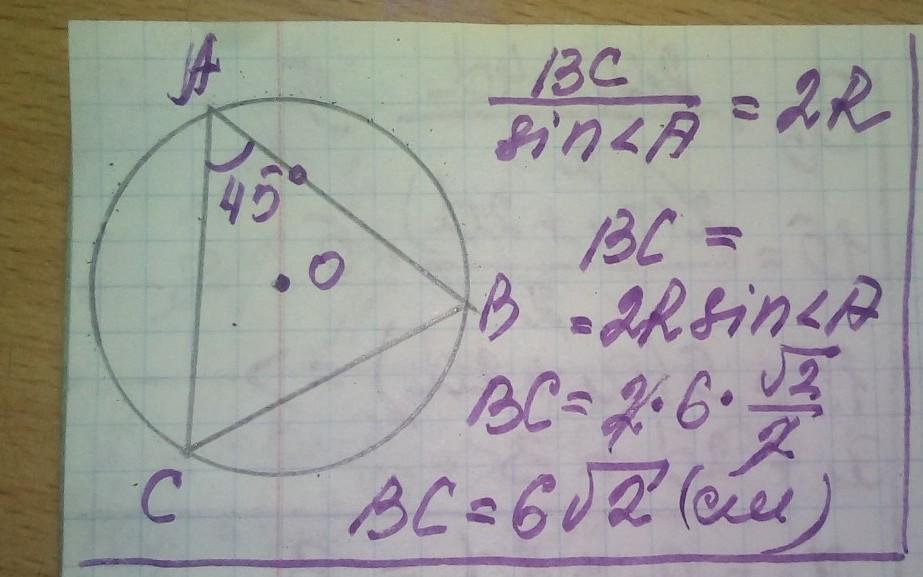 A
45°
O
B
C
BC / sin∠A = 2R
BC =
= 2R sin∠A
BC = 2 · 6 · √2 / 2
BC = 6√2 (см)